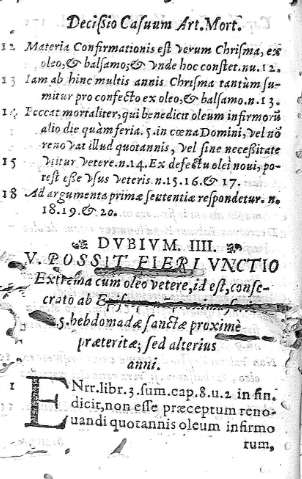 Decißio Casuum Art. Mort.
12 Materia Confirmationis est verum Chrisma, ex
oleo, & balsamo; & vnde hoc constet. nu. 12.
13 Iam ab hinc multis annis Chrisma tantùm su-
mitur pro confecto ex oleo, & balsamo. n. 13.
14 Peccat mortaliter, qui benedicit oleum infirmorū
alio die quàm feria. 5. in cœna Domini, vel nō
reno vat illud quotannis, vel sine necessitate
15 vtitur vetere. n. 14. Ex defectu olei noui, po-
test esse vsus veteris n. 15. 16. & 17.
18 Ad argumenta primæ sententiæ respondetur. n.
18. 19. & 20.
DVBIVM. IIII.
V. POSSIT FIERI VNCTIO
Extrema cum oleo vetere, id est, conse-
crato ab
5. hebdomadæ sanctæ proximè
præteritæ, sed alterius
anni.
1 ENrr. libr. 3. sum. cap. 8. u. 2 in fin.
dicit, non esse præceptum reno-
uandi quotannis oleum infirmo
rum,